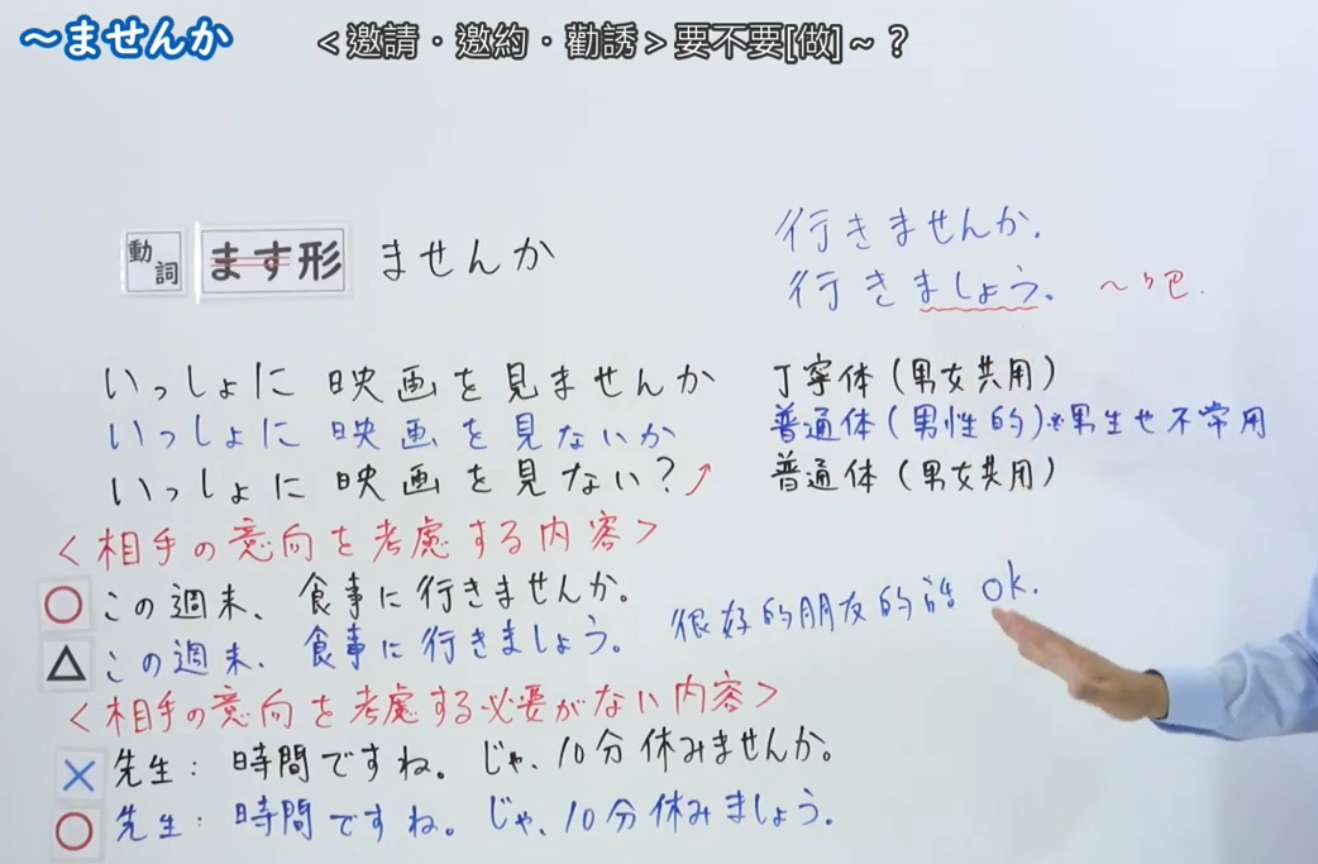 ～ませんか <邀請・邀約・勸誘>要不要[做]～？
動詞 ます形 ませんか
行きませんか.
行きましょう. ～吧.
いっしょに 映画を見ませんか 丁寧体(男女共用)
いっしょに 映画を見ないか 普通体(男性的)※男生也不常用
いっしょに 映画を見ない？↗ 普通体(男女共用)
<相手の意向を考慮する内容>
○ この週末、食事に行きませんか。
△ この週末、食事に行きましょう。 很好的朋友的話 ok.
<相手の意向を考慮する必要がない内容>
× 先生：時間ですね。じゃ、10分休みませんか。
○ 先生：時間ですね。じゃ、10分休みましょう.